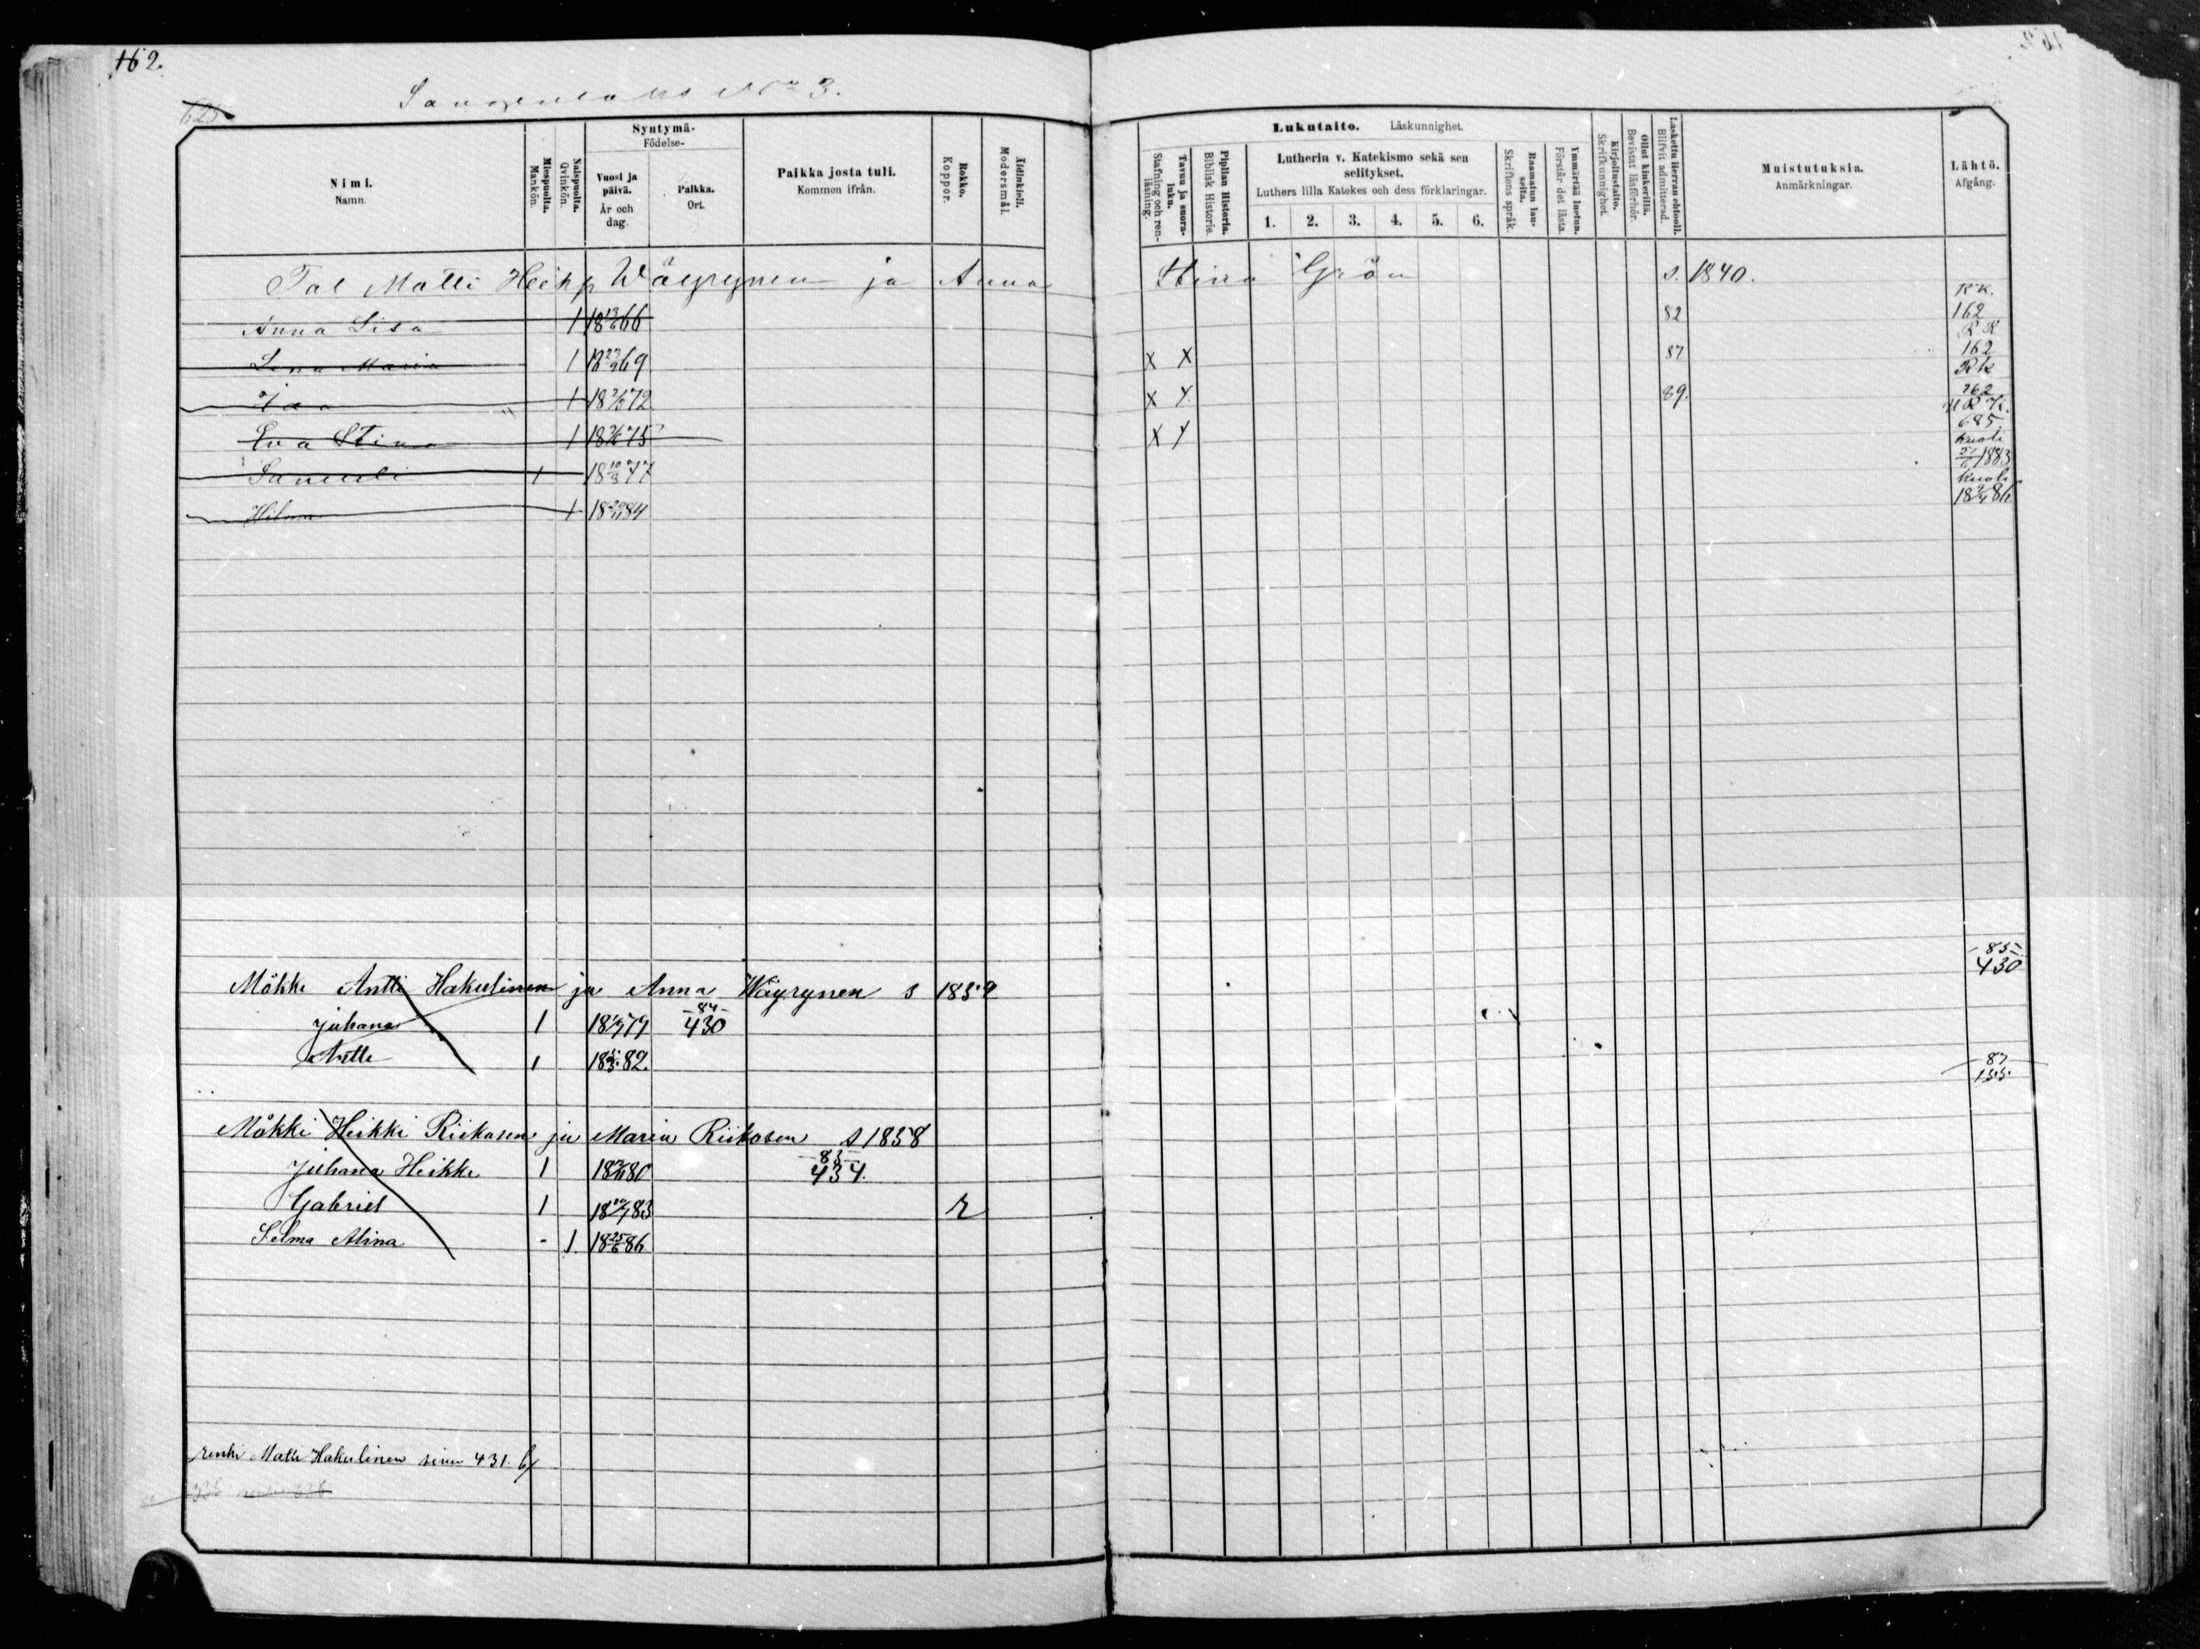 162.
N:o 3.
Nimi. Namn.
Miespuolta. Mankön.
Naispuolta. Qvinkön.
Syntymä- Födelse-
Vuosi ja päivä. År och dag.
Paikka. Ort.
Paikka josta tuli. Kommen ifrån.
Rokko. Koppor.
Äidinkieli. Modersmål.
Lukutaito. Läskunnighet.
Tavuu ja suora-luku. Stafning och ren-läsning.
Piplian Historia. Biblisk Historie.
Lutherin v. Katekismo sekä sen selitykset.
Luthers lilla Katekes och dess förklaringar.
1. 2. 3. 4. 5. 6.
Raamatun lauseita. Skriftens språk.
Ymmärtää luetun. Förstår det lästa.
Kirjoitustaito. Skrifkunnighet.
Ollut kinkerillä. Bevistat läsförhör.
Laskettu Herran ehtooll. Blifvit admitterad.
Muistutuksia. Anmärkningar.
Lähtö. Afgång.
Tal Matti Heikp Wäyrynen ja Anna Stina Grön s. 1840.
Anna Lisa 1 18 66 82 RK. 162
Lena Maria 1 18 69 X X 87 RK 162
1 18 72 X X 89. RK 262
Eva Stina 1 18 75 X X 685.
Samuli 1 18 10/3 77 kuoli 1883
Hilma 1 18 84 kuoli 18 86
Mökki Antti Hakulinen ja Anna Wäyrynen s 1859 85 430
Juhana 1 18 79 84 430
Antti 1 18 82.
87 155.
Mökki Heikki Riikosen ja Maria Riikosen s 1858
Juhana Heikki 1 18 80 83 434.
Gabriel 1 18 83 r
Selma Alina - 1. 18 25/6 86
renki Matti Hakulinen sivu 431.